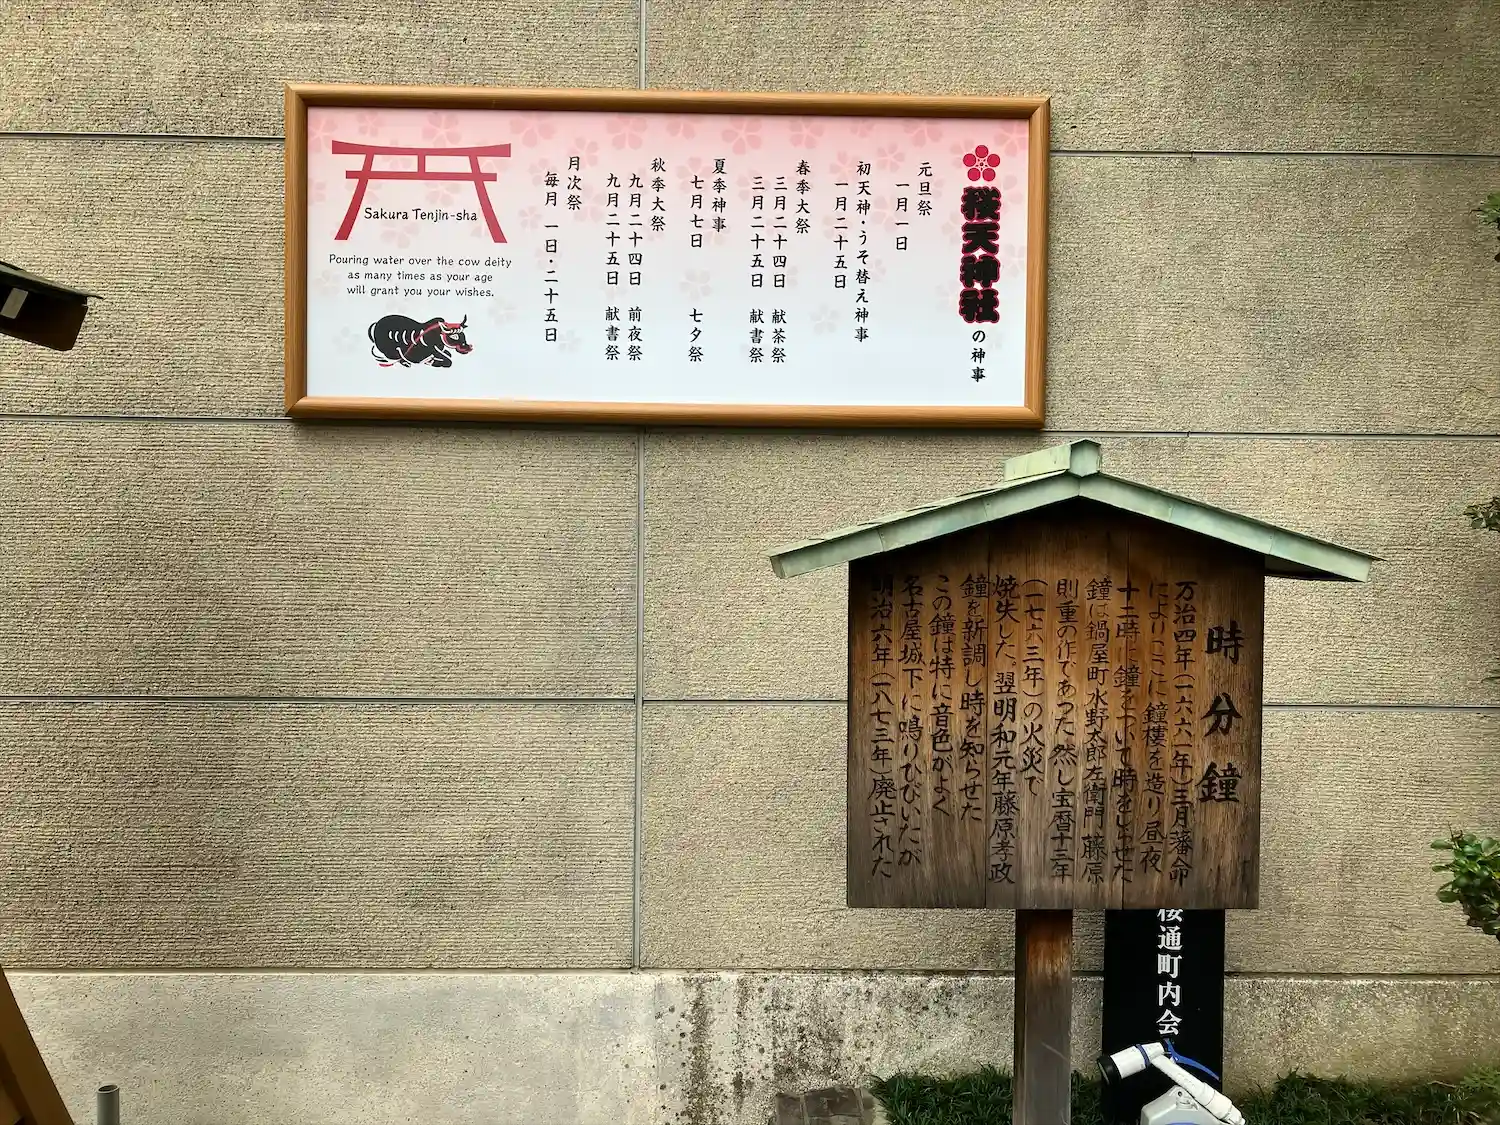 桜天神社の神事
元旦祭
一月一日
初天神・うそ替え神事
一月二十五日
春季大祭
三月二十四日 献茶祭
三月二十五日 献書祭
夏季神事
七月七日 七夕祭
秋季大祭
九月二十四日 前夜祭
九月二十五日 献書祭
月次祭
毎月 一日・二十五日
Sakura Tenjin-sha
Pouring water over the cow deity
as many times as your age
will grant you your wishes.
時分鐘
万治四年(一六六一年)三月藩命
によりここに鐘樓を造り昼夜
十二時に鐘をついて時をしらせた
鐘は鍋屋町水野太郎左衛門藤原
則重の作であった然し宝暦十三年
(一七六三年)の火災で
焼失した。翌明和元年藤原孝政
鐘を新調し時を知らせた
この鐘は特に音色がよく
名古屋城下に鳴りひびいたが
明治六年(一八七三年)廃止された
桜通町内会